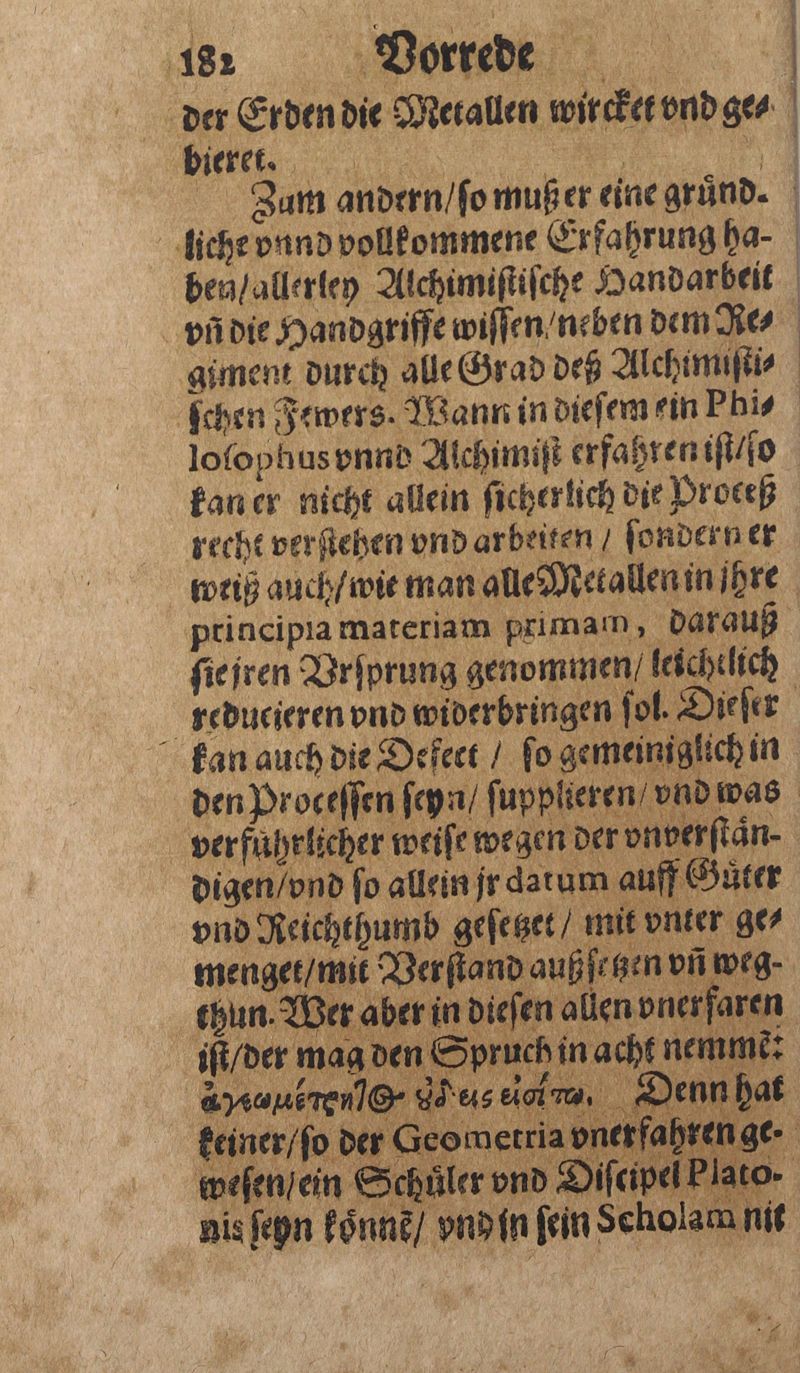 182 Vorrede
der Erden die Metallen wircket vnd ge⸗
bieret.
Zum andern/ ſo muß er eine gruͤnd-
liche vnnd vollkommene Erfahrung ha-
ben/ allerley Alchimiſtiſche Handarbeit
vñ die Handgriffe wiſſen/ neben dem Re⸗
giment durch alle Grad deß Alchimiſti⸗
ſchen Fewers. Wann in dieſem ein Phi⸗
loſophus vnnd Alchimiſt erfahren iſt/ ſo
kan er nicht allein ſicherlich die Proceß
recht verſtehen vnd arbeiten / ſondern er
weiß auch/ wie man alle Metallen in jhre
principia materiam primam, darauß
ſie jren Vrſprung genommen/ leichtlich
reducieren vnd widerbringen ſol. Dieſer
kan auch die Defect / ſo gemeiniglich in
den Proceſſen ſeyn/ ſupplieren/ vnd was
verfuͤhrlicher weiſe wegen der vnverſtaͤn-
digen/ vnd ſo allein jr datum auff Guͤter
vnd Reichthumb geſetzet / mit vnter ge⸗
menget/ mit Verſtand außſetzen vñ weg-
thun. Wer aber in dieſen allen vnerfaren
iſt/ der mag den Spruch in acht nemmẽ:
ἀγεωμέτρητ<unk>ος ȣ̓δεὶς εἰσίτω. Denn hat
keiner/ ſo der Geometria vnerfahren ge-
weſen/ ein Schuͤler vnd Diſcipel Plato-
nis ſeyn koͤnnẽ/ vnd in ſein Scholam nit